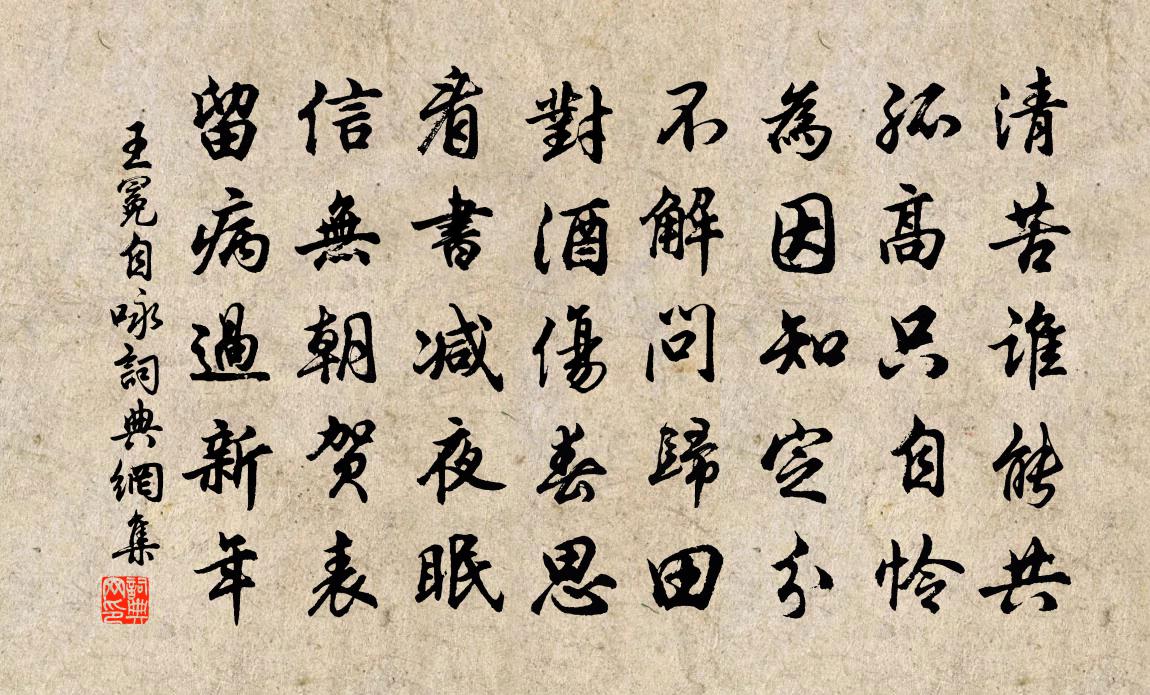 清苦誰能共
孤高只自怜
為因知定分
不解問歸田
對酒傷春思
看書减夜眠
信無朝贺表
留病過新年
王冕自咏詞典網集
詞典网印